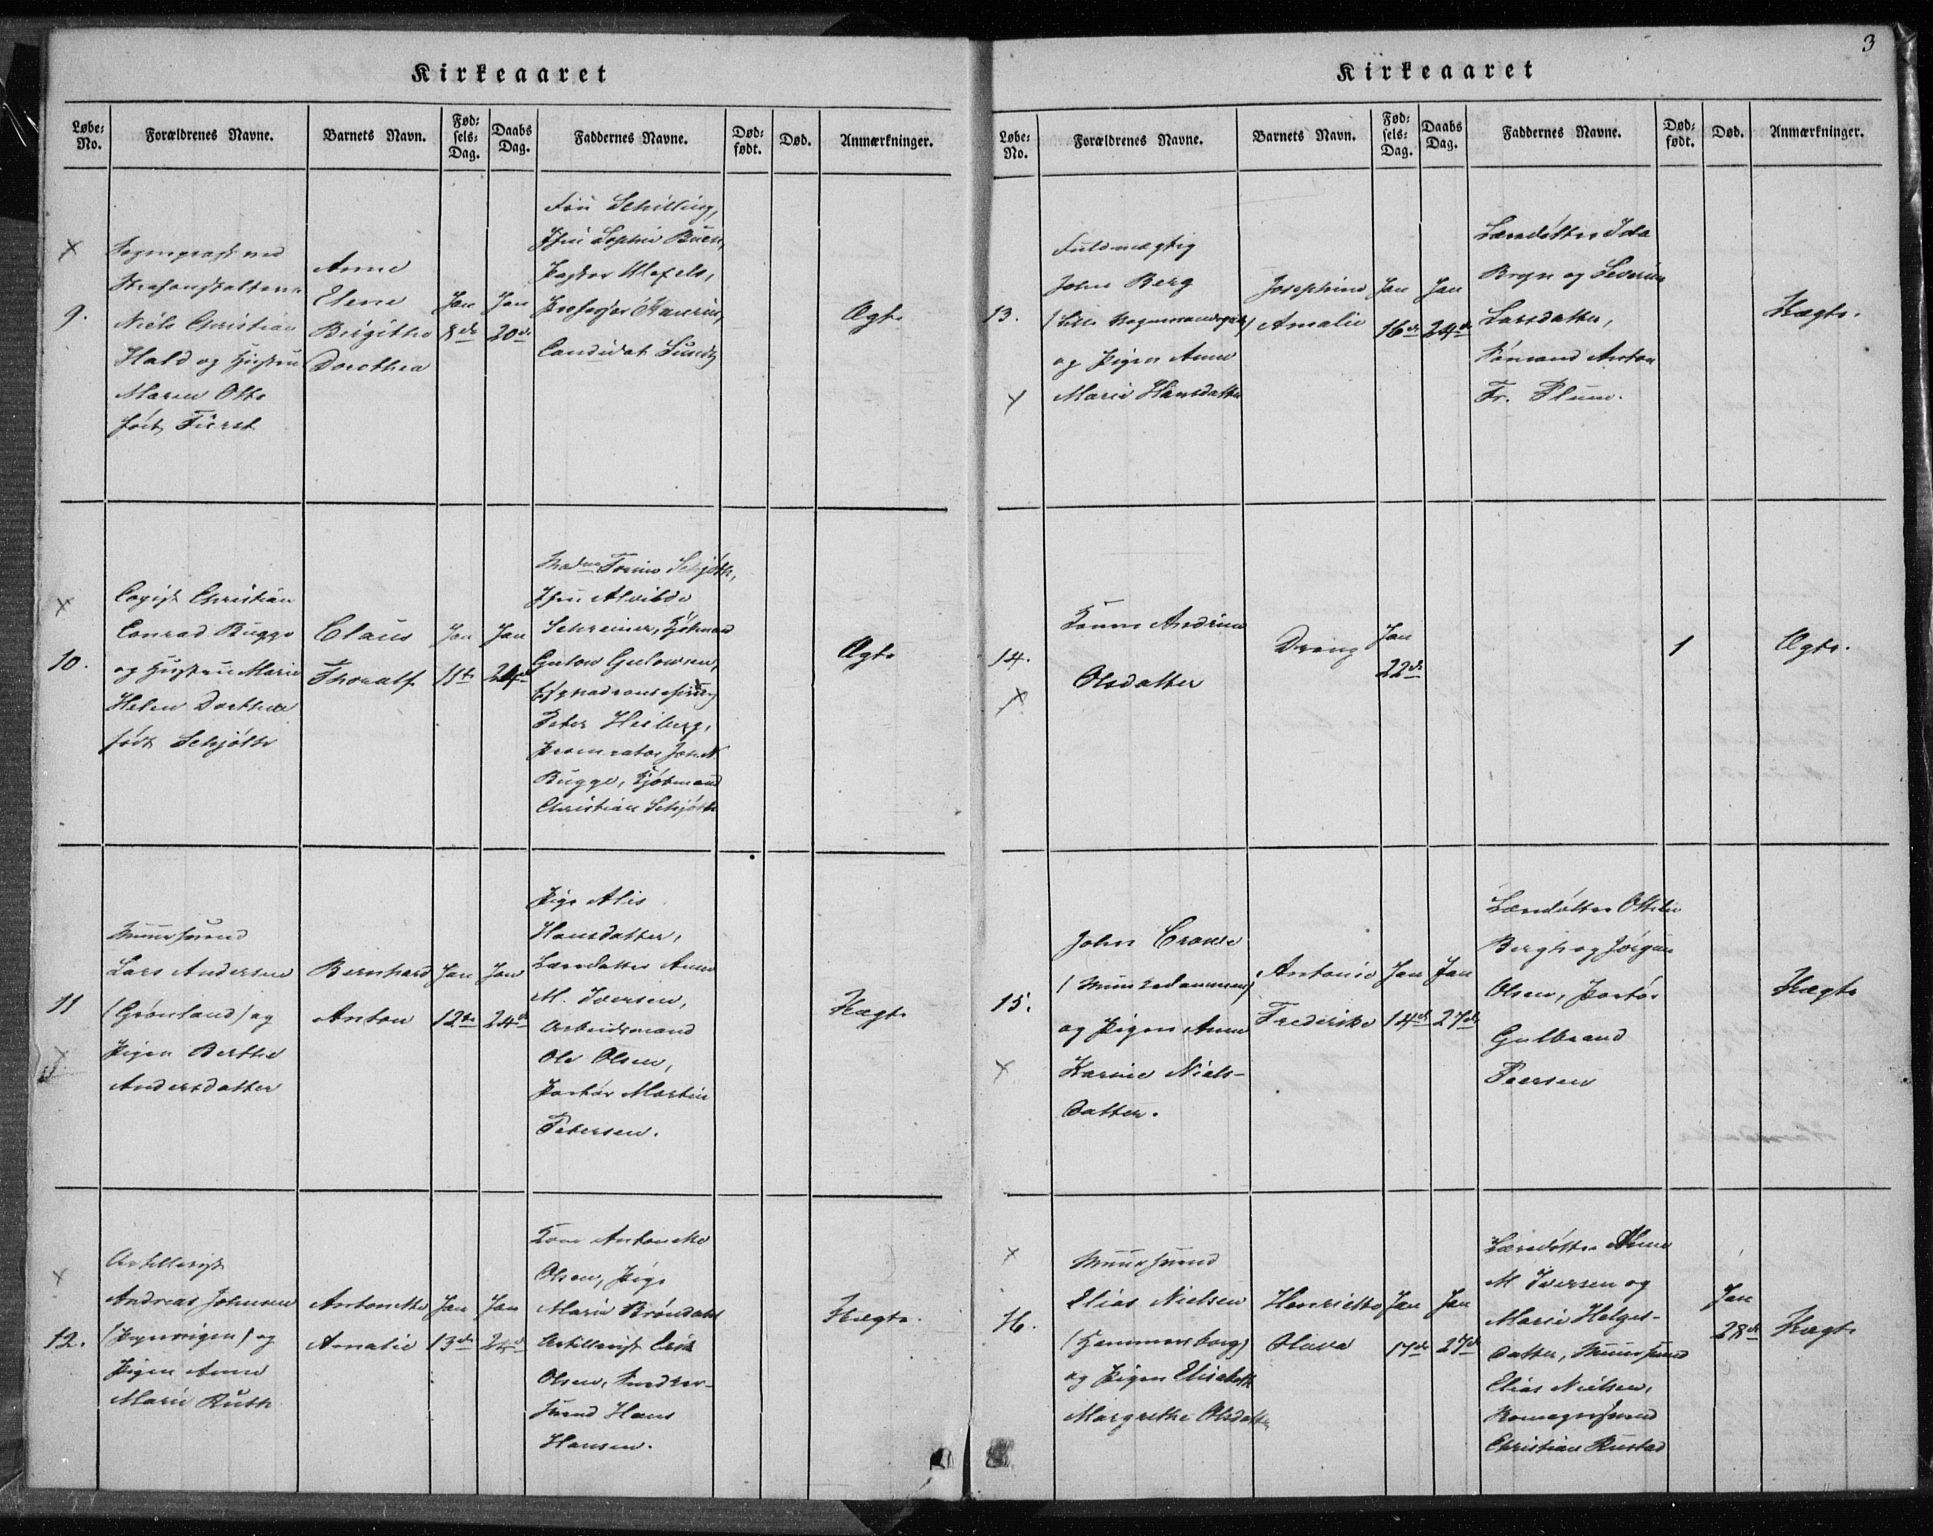 Kirkeaaret
Løbe-
No.
Forældrenes Navne.
Barnets Navn.
Fød-
sels-
Dag.
Daabs
Dag.
Faddernes Navne.
Død-
født.
Død.
Anmærkninger.
9.
Niels Christian
Hald og Hustru
Maren Otto
født Fürst
Anne
Elene
Birgitha
Dorothea
Jan
8de
Jan
20de
Fru Schilling,
Jfru Sophie
Pastor
Professor
Candidat
Ægte
10.
Copist Christian
Conrad Bugge
og Hustru Marie
Helen Dorthea
født Schjøth
Claus
Thoralf
Jan
11te
Jan
24de
Schjøth,
Jfru Alvilde
Schreiner, Kjøbmand
Gulow Gulowsen,
Peter Heiberg,
Procurator
Bugge, Kjøbmand
Christian Schjøth
Ægte
11
Muursvend
Lars Andersen
(Grønland) og
Pigen Berthe
Andersdatter
Bernhard
Anton
Jan
12te
Jan
24de
Pige Alis
Hansdatter,
Anne
M. Iversen,
Arbeidsmand
Ole Olsen,
Martin
Petersen.
Uægte
12.
Artillerist
Andreas Johnsen
og
Pigen Anne
Marie Ruth
Antonette
Amalie
Jan
13de
Jan
24de
Kone Antonette
Olsen, Pige
Marie Brøndahl
Artillerist Erik
Olsen, Snedker-
svend Hans
Hansen.
Uægte.
3
Kirkeaaret
Løbe-
No.
Forældrenes Navne.
Barnets Navn.
Fød-
sels-
Dag.
Daabs
Dag.
Faddernes Navne.
Død-
født.
Død.
Anmærkninger.
13.
Fuldmægtig
John Berg
og Pigen Anne
Marie Hansdatter
Josephine
Amalie
Jan
16de
Jan
24de
Ida
Bryn og Severine
Larsdatter,
Anton
Fr. Plum.
Uægte.
14.
Konen Andrine
Olsdatter
Dreng
Jan
22de
1
Ægte.
15.
John Crowe
(Munkedammen)
og Pigen Anne
Karine Niels-
datter.
Antonie
Frederike
Jan
14de
Jan
27de
Ottilie
Bergh og Jørgine
Olsen,
Gulbrand
Peersen
Uægte
16.
Muursvend
Elias Nielsen
(Hammersborg)
og Pigen Elisabeth
Margrethe Olsdatter
Henriette
Olava
Jan
17de
Jan
27de
Anne
M Iversen og
Marie Helges-
datter, Muursvend
Elias Nielsen,
Christian Rustad
Jan
28de
Uægte